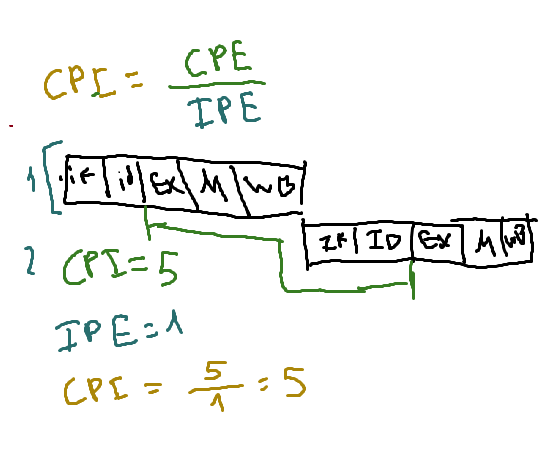 CPI = CPE / IPE
1 IF ID EX M WB
IF ID EX M WB
2 CPI = 5
IPE = 1
CPI = 5 / 1 = 5